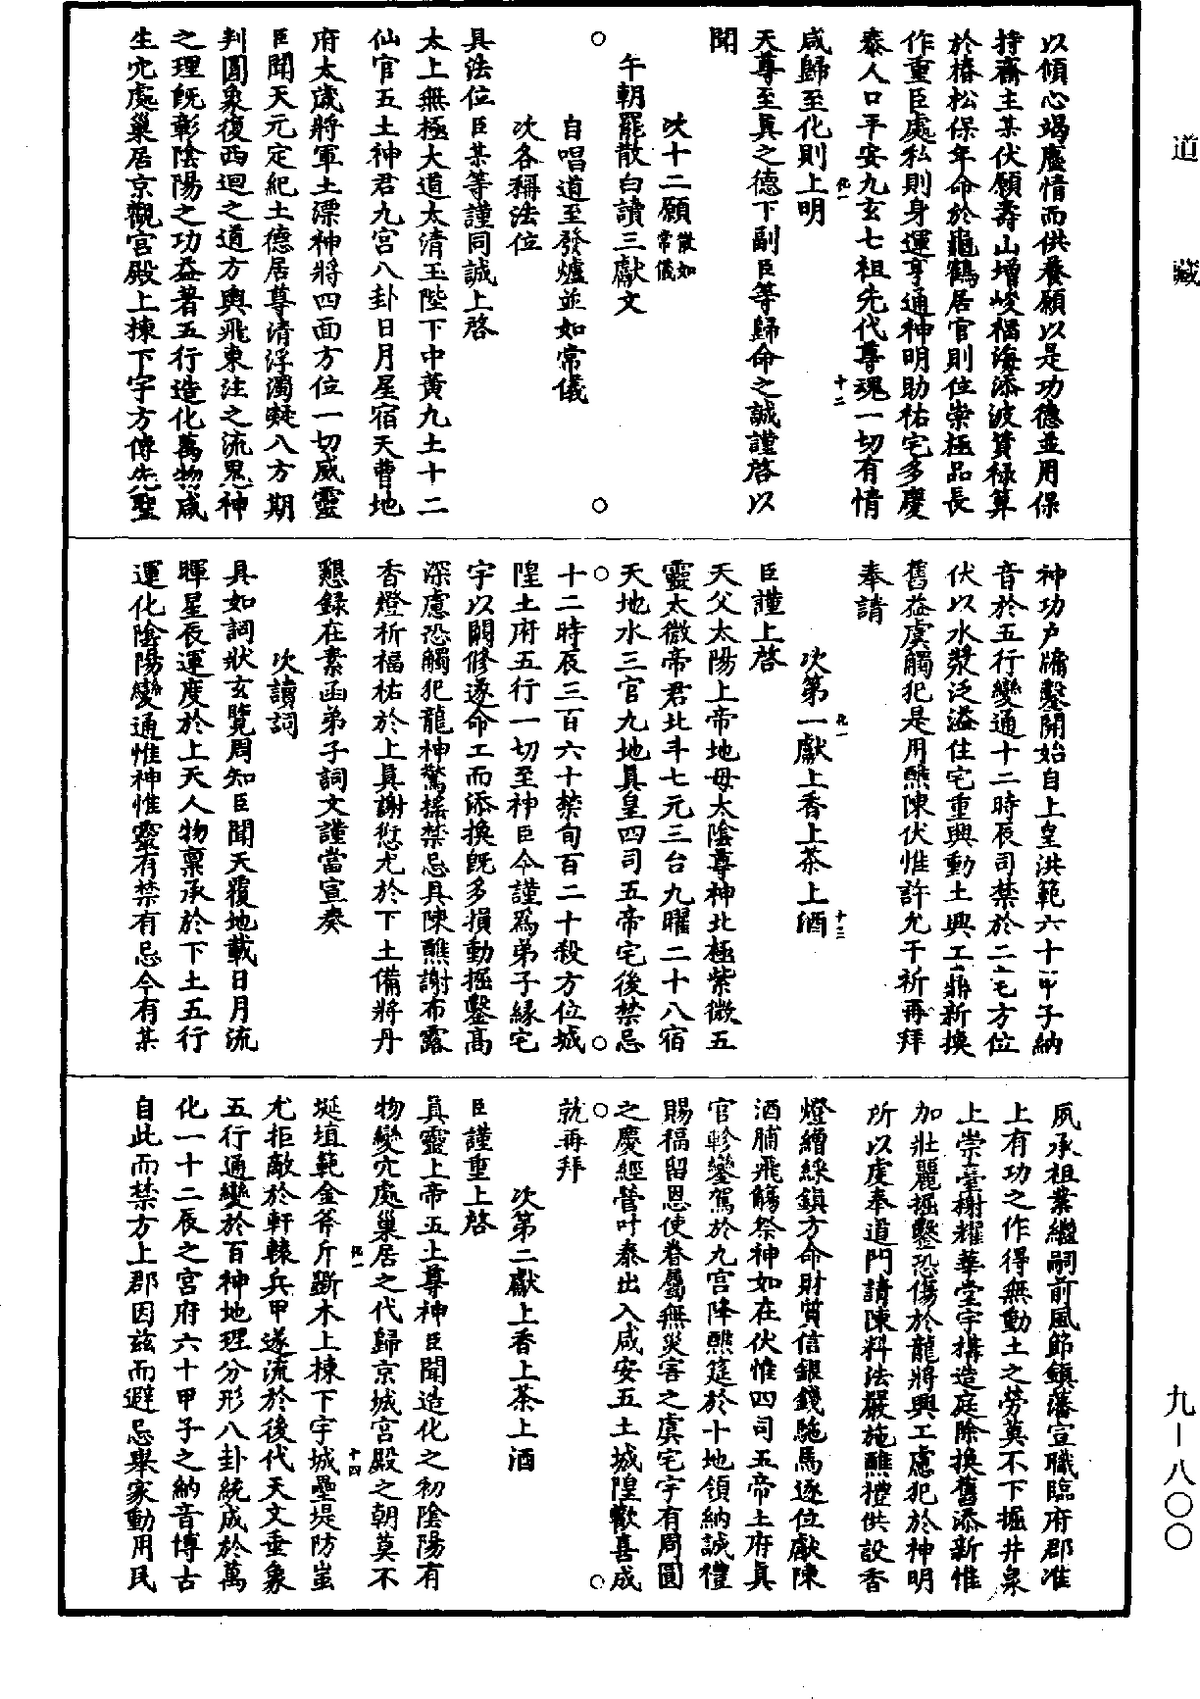 道藏
以傾心竭慶情而供養願以是功德並用保
持齋主某伏願壽山增峻福海添波筭祿算
於椿松保年命於龜鶴居官則位崇極品長
作重臣處私則身運亨通神明助祐宅多慶
泰人口平安九玄七祖先代尊魂一切有情
咸歸至化則上明
天尊至真之德下副臣等歸命之誠謹啓以
聞
次十二願散如常儀
午朝罷散白讀三獻文
自唱道至發爐並如常儀
次各稱法位
具法位臣某等謹同誠上啓
太上無極大道太清玉陛下中黃九土十二
仙官五土神君九宮八卦日月星宿天曹地
府太歲將軍土漂神將四面方位一切威靈
臣聞天元定紀土德居尊清浮濁凝八方期
判圓象復西迴之道方輿飛東注之流鬼神
之理旣彰陰陽之功益著五行造化萬物咸
生穴處巢居京觀宮殿上棟下宇方傳先聖
神功戶牖鑿開始自上皇洪範六十甲子納
音於五行變通十二時辰司禁於二宅方位
伏以水漿泛溢住宅重興動土興工鼎新換
舊益虞觸犯是用醮陳伏惟許允干祈再拜
奉請
次第一獻上香上茶上酒
臣謹上啓
天父太陽上帝地母太陰尊神北極紫微五
靈太微帝君北斗七元三台九曜二十八宿
天地水三官九地真皇四司五帝宅後禁忌
十二時辰三百六十禁旬百二十殺方位城
隍土府五行一切至神臣今謹爲弟子緣宅
宇以闕修遂命工而添換旣多損動掘鑿高
深慮恐觸犯龍神驚搖禁忌具陳醮謝布露
香燈祈福祐於上真謝愆尤於下土備將丹
懇錄在素函弟子詞文謹當宣奏
次讀詞
具如詞狀玄覽周知臣聞天覆地載日月流
暉星辰運度於上天人物稟承於下土五行
運化陰陽變通惟神惟靈有禁有忌今有某
夙承祖業繼嗣前風節鎮藩宣職臨府郡准
上有功之作得無動土之勞莫不下掘井泉
上崇臺榭耀華堂宇構造庭除換舊添新惟
加壯麗掘鑿恐傷於龍將興工慮犯於神明
所以虔奉道門請陳科法嚴施醮禮供設香
燈繒綵鎮方命財質信銀錢駞馬逐位獻陳
酒脯飛觴祭神如在伏惟四司五帝土府真
官軫鑾駕於九宮降醮筵於十地領納誠禮
賜福留恩使眷屬無災害之虞宅宇有周圓
之慶經營叶泰出入咸安五土城隍歡喜成
就再拜
次第二獻上香上茶上酒
臣謹重上啓
真靈上帝五土尊神臣聞造化之初陰陽有
物變穴處巢居之代歸京城宮殿之朝莫不
埏埴範金斧斤斲木上棟下宇城壘堤防蚩
尤拒敵於軒轅兵甲遂流於後代天文垂象
五行通變於百神地理分形八卦統成於萬
化一十二辰之宮府六十甲子之納音博古
自此而禁方上郡因茲而避忌舉家動用民
九一八〇〇